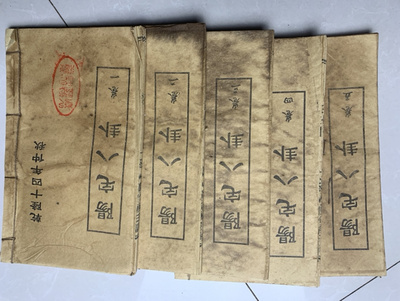 陽宅八卦 卷一
乾隆十四年仲秋
陽宅八卦 卷二
陽宅八卦 卷三
陽宅八卦 卷四
陽宅八卦 卷五